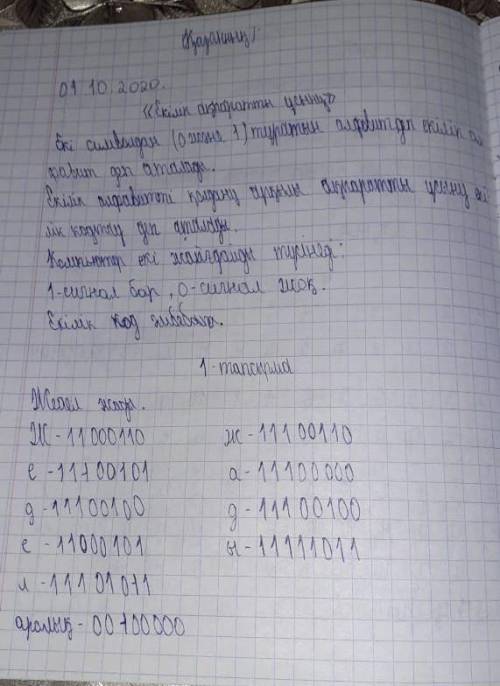 01.10.2020.
«Екілік ақпаратты ұсыну»
Екі символдан (0 және 1) тұратын алфавит деп екілік ал
фавит деп аталады.
Екілік алфавитті қолдану арқылы ақпаратты ұсыну екі
лік кодтау деп аталады.
Компьютер екі жағдайды түсінеді:
1-сигнал бар, 0-сигнал жоқ.
Екілік код
1-тапсырма
Жедел жады.
Ж - 11000110 ж - 11100110
е - 11100101 а - 11100000
д - 11100100 д - 11100100
е - 11000101 ы - 11111011
л - 11101011
аралық - 00100000